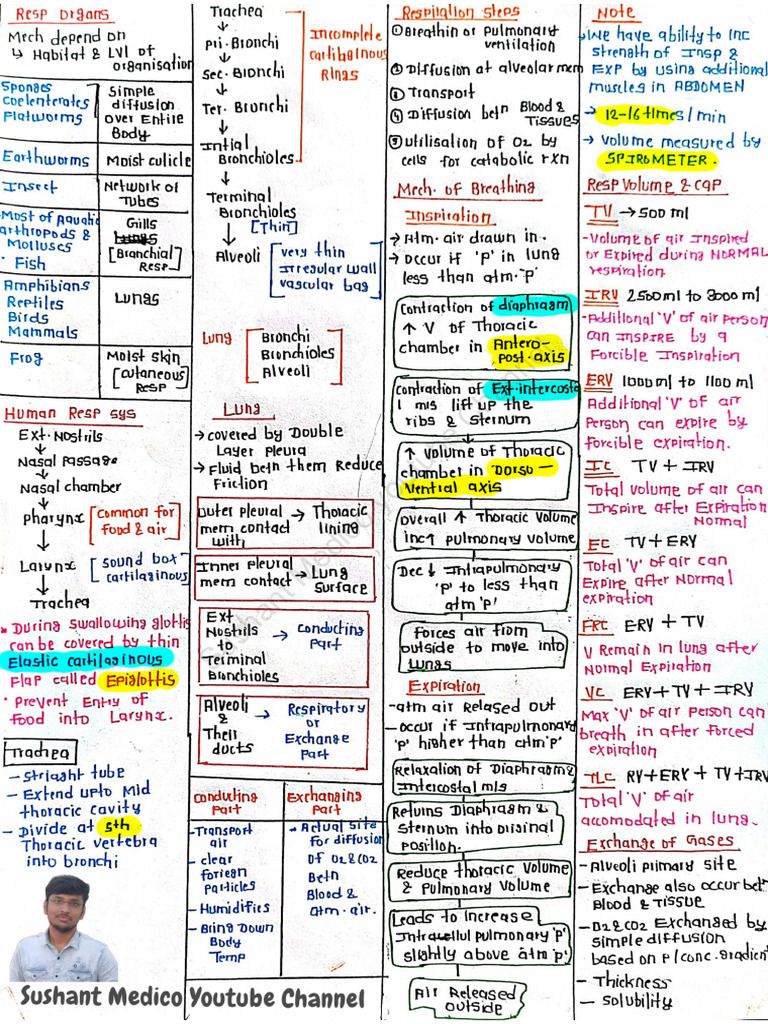 Resp Organs
Mech depend on
↳ Habitat & LVl of
organisation
Sponges
Coelenterates
Flatworms
Simple
diffusion
over Entire
Body
Earthworms
Moist cuticle
Insect
Network of
Tubes
Most of Aquatic
arthropods &
Molluscs
· Fish
Gills
Lungs
[Branchial
Resp]
Amphibians
Reptiles
Birds
Mammals
Lungs
Frog
Moist skin
[Cutaneous
Resp]
Human Resp sys
Ext. Nostrils
↓
Nasal passage
↓
Nasal chamber
↓
Pharynx [Common for
food & air]
↓
Larynx [sound box
cartilaginous]
↓
Trachea
* During swallowing glottis
can be covered by thin
Elastic cartilaginous
Flap called Epiglottis
· Prevent Entry of
Food into Larynx.
Trachea
– Striaght tube
– Extend upto Mid
thoracic cavity
– Divide at 5th
Thoracic vertebra
into bronchi
Trachea
↓
Pri. Bronchi
↓
Sec. Bronchi
↓
Ter. Bronchi
↓
Initial
Bronchioles
Incomplete
cartilaginous
Rings
↓
Terminal
Bronchioles
[Thin]
↓
Alveoli
[very thin
irregular wall
vascular bag]
Lung [Bronchi
Bronchioles
Alveoli]
Lung
→ covered by Double
Layer pleura
→ Fluid betn them Reduce
Friction
Outer pleural → Thoracic
mem contact lining
with
Inner pleural
mem contact → Lung
Surface
Ext
Nostrils
to
Terminal
Bronchioles
→ Conducting
Part
Alveoli
&
Their
ducts
→ Respiratory
or
Exchange
Part
Conducting
part
– Transport
air
– clear
foriegn
particles
– Humidifies
– Bring Down
Body
Temp
Exchanging
Part
• Actual site
for diffusion
Of O2 & CO2
Betn
Blood &
atm. air.
Respiration steps
① Breathin or pulmonary
ventilation
② Diffusion at alveolar mem
③ Transport
④ Diffusion betn Blood &
Tissues
⑤ utilisation of O2 by
cells for catabolic rxn
Mech. of Breathing
Inspiration
→ Atm. air drawn in.
→ occur if 'P' in lung
less than atm. 'P'
Contraction of diaphragm
↑ V of Thoracic
chamber in Antero-
post. axis
Contraction of Ext. intercosta
l mls lift up the
ribs & sternum
↑ volume of Thoracic
chamber in Dorso –
Ventral axis
Overall ↑ Thoracic volume
inc↑ pulmonary volume
Dec ↓ Intrapulmonary
'P' to less than
atm 'P'
Forces air from
outside to move into
Lungs
Expiration
– atm air relased out
– occur if Intrapulmonary
'P' higher than atm 'P'
Relaxation of Diaphragm &
Intercostal mls
Retuins Diaphragm &
sternum into original
position.
Reduce thoracic volume
& Pulmonary volume
Leads to increase
pulmonary 'p'
slightly above atm 'p'
Air Released
outside
Note
↳ We have ability to inc
strength of Insp &
Exp by using additional
muscles in ABDOMEN
→ 12-16 times / min
→ volume measured by
SPIROMETER.
Resp Volume & cap
TV → 500 ml
- Volume of air Inspired
or Expired during NORMAL
respiration
IRV 2500 ml to 3000 ml
- Additional 'V' of air person
can Inspire by a
Forcible Inspiration
ERV 1000 ml to 1100 ml
Additional 'V' of air
Person can expire by
forcible expiration.
IC TV + IRV
Total volume of air can
Inspire after Expiration
Normal
EC TV + ERV
Total 'V' of air can
Expire after Normal
expiration
FRC ERV + TV
V Remain in lung after
Normal Expiration
VC ERV + TV + IRV
Max 'V' of air person can
breath in after forced
expiration
TLC RV + ERV + TV + IRV
Total 'V' of air
accomodated in lung.
Exchange of Gases
– Alveoli primary site
– Exchange also occur betn
Blood & Tissue
– O2 & CO2 Exchanged by
simple diffusion
based on P / conc. gradient
– Thickness
– solubility
Sushant Medico Youtube Channel